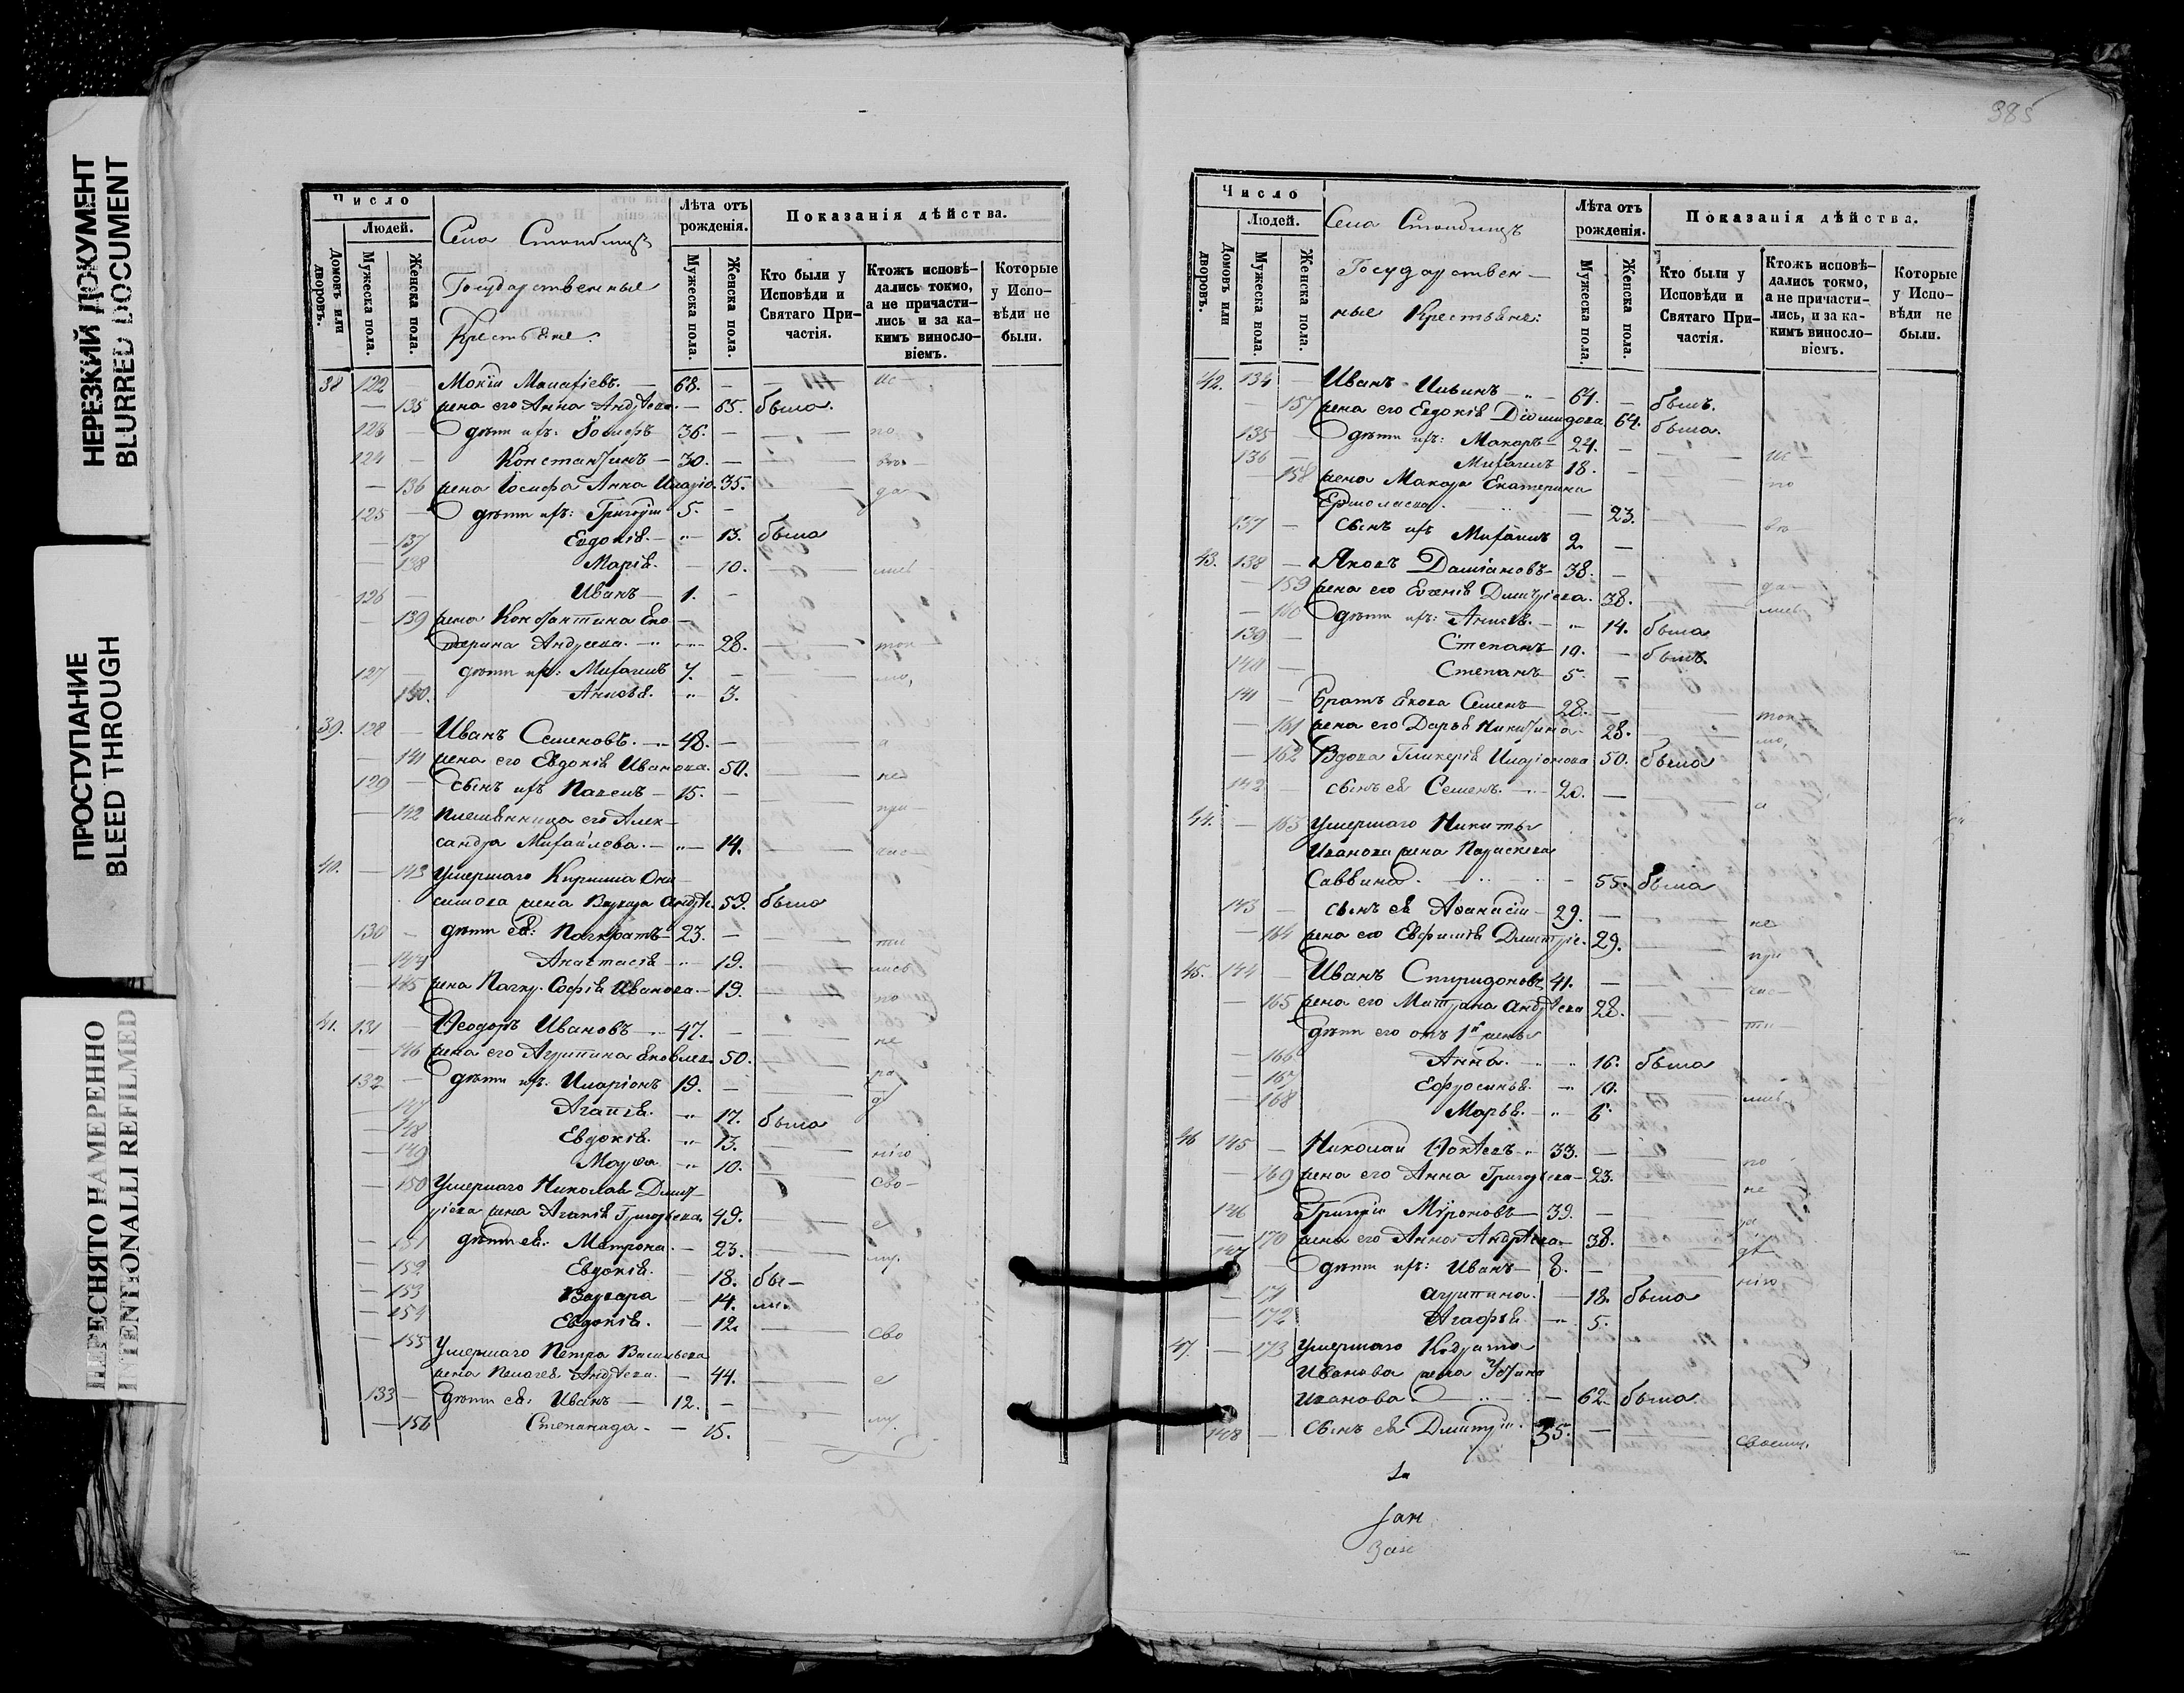 НЕРЕЗКИЙ ДОКУМЕНТ
BLURRED DOCUMENT
ПРОСТУПАНИЕ
BLEED THROUGH
ПЕРЕСНЯТО НАМЕРЕННО
INTENTIONALLI REFILMED
Число
Людей.
Домовъ или дворовъ.
Мужеска пола.
Женска пола.
Села Столбищъ
Государственные
Крестьяне:
Лѣта отъ рожденія.
Мужеска пола.
Женска пола.
Показанія дѣйства.
Кто были у Исповѣди и Святаго Причастія.
Ктожъ исповѣдались токмо, а не причастились и за какимъ винословіемъ.
Которые у Исповѣди не были.
38 122 — Мокій Малафіевъ. — 68. — ис—
— 135 жена его Анна Андрѣева. — 65. была.
123 — дѣти ихъ: Іосифъ 36. — по
124 — Константинъ — 30. — вѣ—
— 136 жена Іосифа Анна Иларіо. 35. — да
125 — дѣти ихъ: Григорій 5. —
— 137 Евдокія. — 13. была
— 138 Марія. — 10. — лись
126 — Иванъ — 1. —
— 139 жена Константина Ека—
терина Андреева. — 28. — ток—
127 — дѣти ихъ: Михаилъ 7. — мо,
— 140. Анисья. 3.
39. 128 — Иванъ Семеновъ. — 48. — а
— 141 жена его Евдокія Иванова. 50. — не
129 — сынъ ихъ Павелъ — 15. —
— 142 племянница его Алек— при—
сандра Михайлова. — 14. час—
40. — 143 Умершаго Кирилла Они—
симова жена Варвара Андрѣе. 59. была
130 — дѣти ея: Панкратъ — 23. — ти
— 144 Анастасія — 19. — лись
— 145 жена Панкр. Софія Иванова — 19. — по
41. 131 — Ѳеодоръ Ивановъ — 47. — не
— 146 жена его Агрипина Яковлев. 50. — ра
132 — дѣти ихъ: Иларіонъ 19. —
— 147 Агапія. 17. была
— 148 Евдокія. 13.
— 149 Марѳа 10. — ніго
— 150 Умершаго Николая Дмит— сво—
ріева жена Агапія Григорьева 49. — е
— 151 дѣти ея: Матрона. — 23. — му.
— 152 Евдокія. 18. бы—
— 153 Варвара — 14. ли.
— 154 Евдокія. — 12.
— 155 Умершаго Петра Васильева сво
жена Пелагея Андрѣева. — 44. — е
133 — дѣти ея: Иванъ — 12. — му.
— 156 Степанида — 15.
385
Число
Людей.
Домовъ или дворовъ.
Мужеска пола.
Женска пола.
Села Столбищъ
Государствен—
ные Крестьяне:
Лѣта отъ рожденія.
Мужеска пола.
Женска пола.
Показанія дѣйства.
Кто были у Исповѣди и Святаго Причастія.
Ктожъ исповѣдались токмо, а не причастились, и за какимъ винословіемъ.
Которые у Исповѣди не были.
42. 134 — Иванъ Ильинъ — 64. — былъ.
— 157 жена его Евдокія Діомидова 64. была.
135 — дѣти ихъ: Макаръ — 24. — ис—
136 — Михаилъ 18. —
— 158 жена Макара Екатерина по
Ермолаева. — 23.
137 — сынъ ихъ Михаилъ 2. — вѣ—
43. 138 — Яковъ Даміановъ — 38. —
— 159 жена его Евгенія Дмитріева. 38. — да—
— 160 дѣти ихъ: Анисія. — 14. была лись
139 — Степанъ — 10. — былъ.
140 — Степанъ — 5. —
141 — братъ Якова Семенъ — 28. — ток—
— 161 жена его Дарья Никитина — 28. мо,
— 162 Вдова Гликерія Иларіонова 50. была
142 — сынъ ея Семенъ. — 20. — а
44. — 163 Умершаго Никиты
Иванова жена Параскева
Саввина. — 55. была
143 — сынъ ея Аѳанасій — 29. — не
— 164 жена его Евфимія Дмитріе. 29. при
45. 144 — Иванъ Спиридоновъ 41. — час—
— 165 жена его Матрона Андрѣева 28. ти—
дѣти его отъ 1й жены
— 166 Анна. — 16. была
— 167 Ефросинья. — 10.
— 168 Марья. — 6. лись
46 145 — Николай Ѳокѣевъ — 33. — по
— 169 жена его Анна Григорьева — 23. не
146 Григорій Мѵроновъ — 39. — ра
— 170 жена его Анна Андрѣева — 38. дѣ
147 — дѣти ихъ: Иванъ — 8. — ніго
— 171 Агрипина. — 18. была
— 172 Агафья. — 5.
47. — 173 Умершаго Кодрата
Иванова жена Устина
Иванова — 62. была
148 — Сынъ ея Дмитрій. 35. — своему.